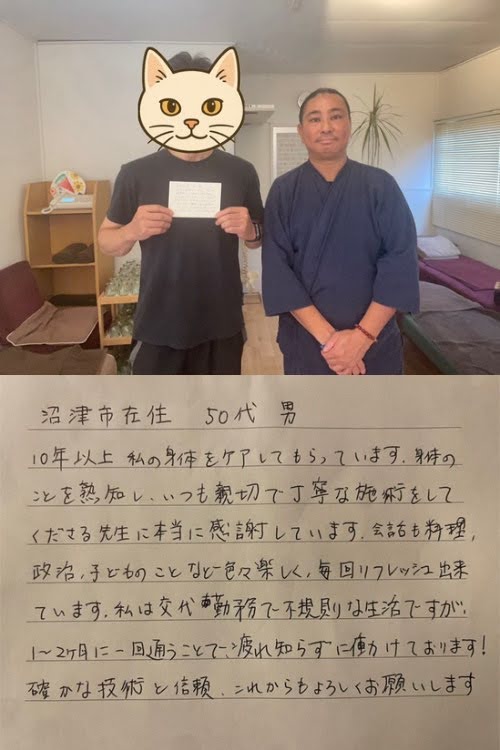 沼津市在住 50代 男
10年以上 私の身体をケアしてもらっています. 身体の
ことを熟知し、いつも親切で丁寧な施術をして
くださる先生に本当に感謝しています. 会話も料理,
政治, 子どものことなど色々楽しく, 毎回リフレッシュ出来
ています. 私は交代勤務で不規則な生活ですが,
1〜2ヶ月に一回通うことで、疲れ知らずに働けております!
確かな技術と信頼、これからもよろしくお願いします